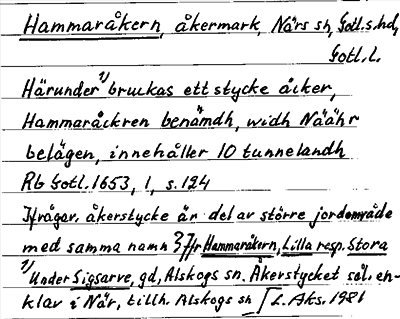 Hammaråkern, åkermark, När sn, Gotl.s.hd,
Gotl.l.
Härunder 1) bruckas ett stycke åcker,
Hammaråckren benämdh, widh Näähr
belägen, innehåller 10 tunnelandh
Rb Gotl. 1653, 1, s. 124
Ifrågav. åkerstycke är del av större jordområde
med samma namn } Jfr Hammaråkern, Lilla resp. Stora
1) Under Sigsarve, gd, Alskogs sn. Åkerstycket sål. en-
klav i När, tillh. Alskogs sn [L. Aks. 1981